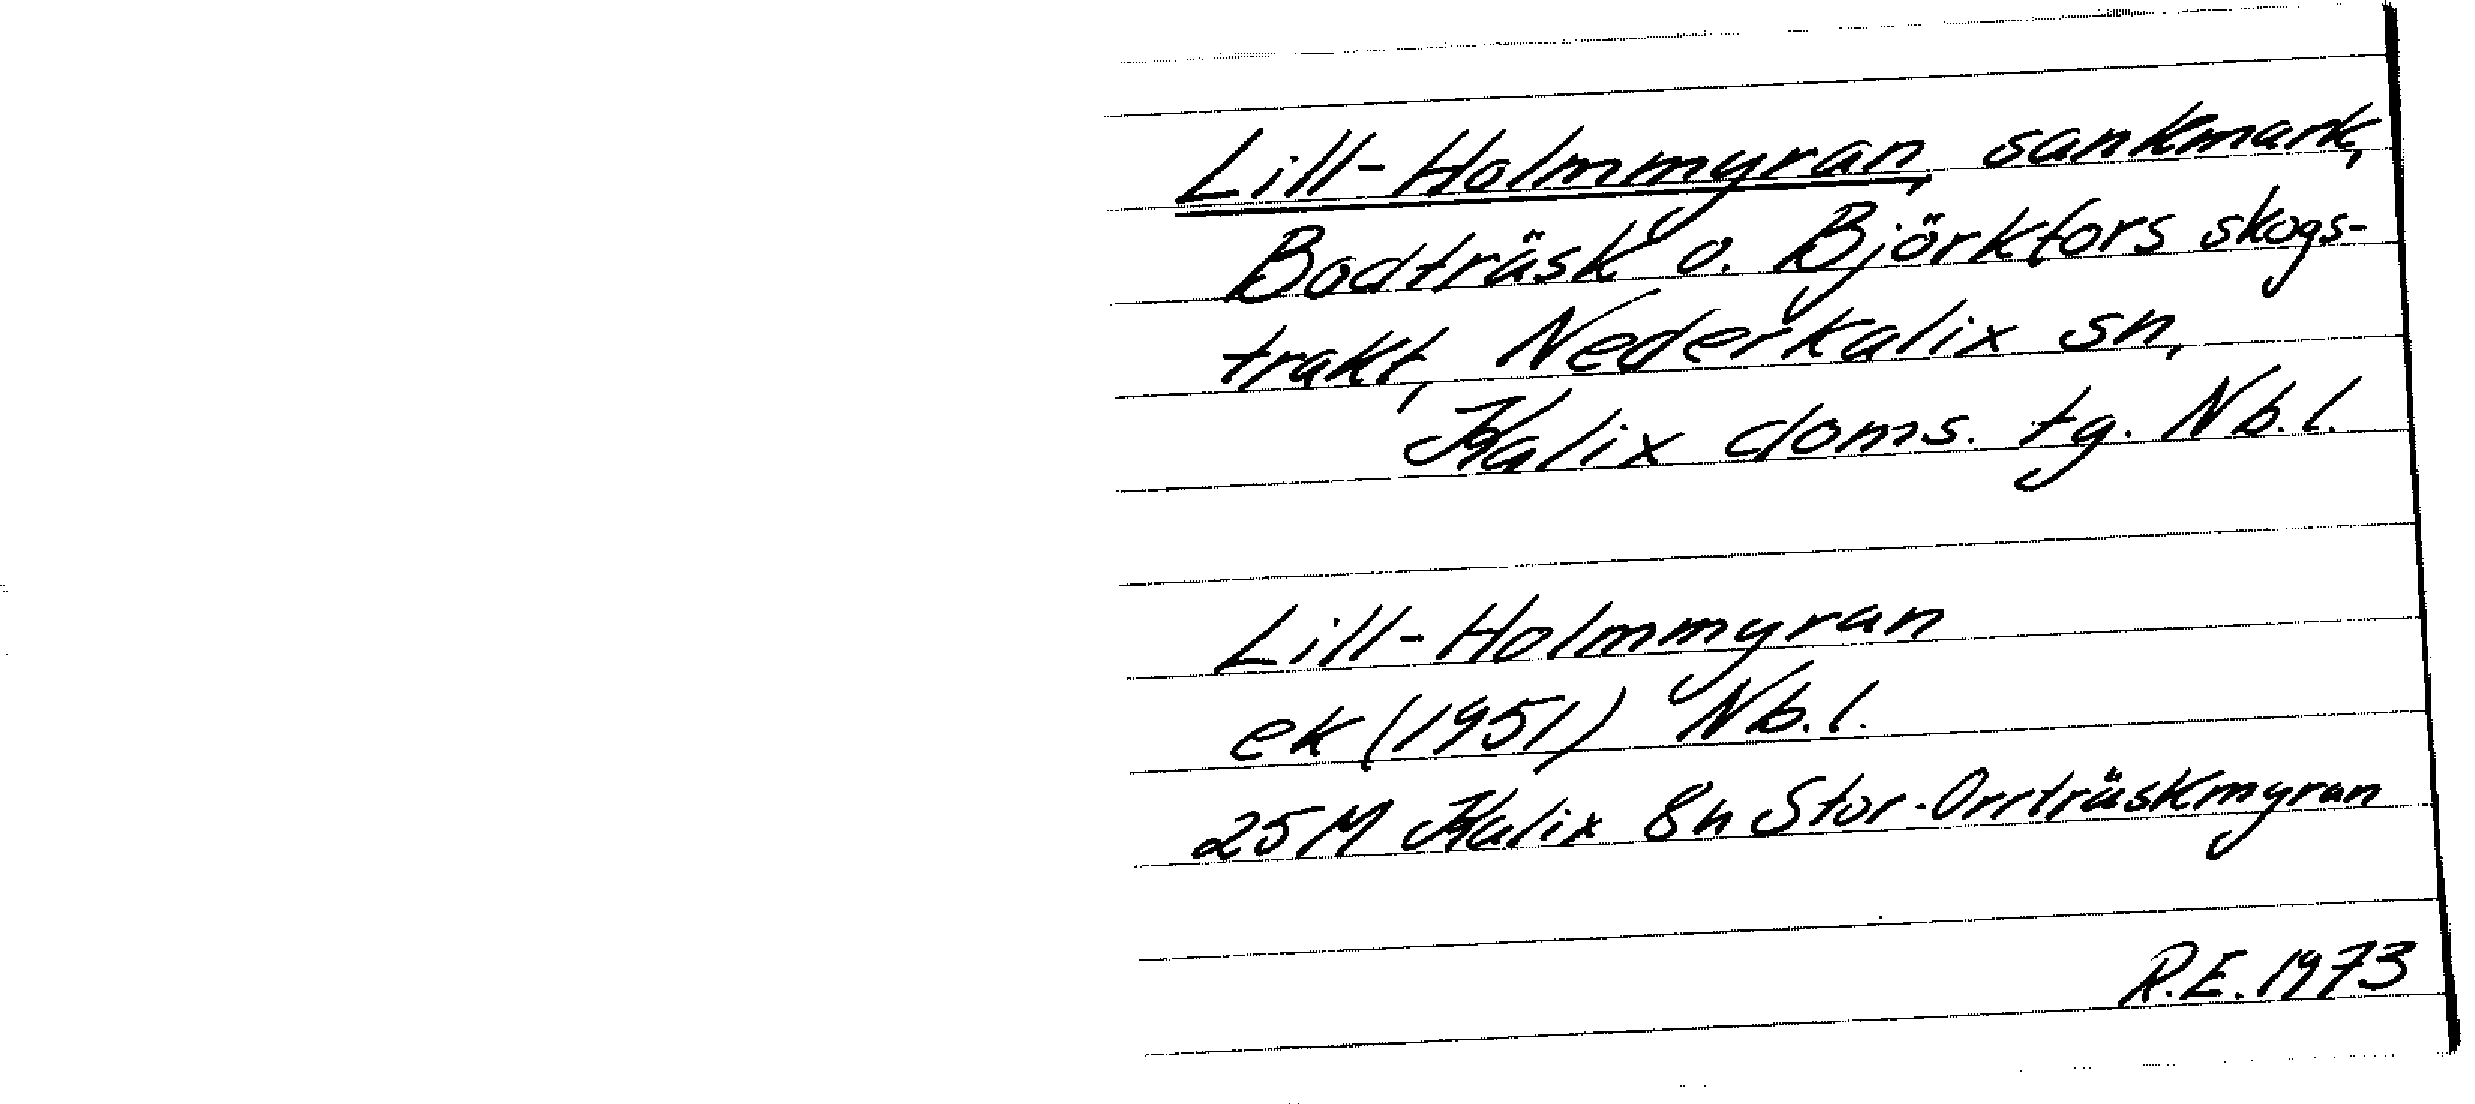 Lill-Holmmyran, sankmark,
Bodträsk o. Björkfors skogs-
trakt, Nederkalix sn,
Kalix doms. tg. Nb.l.
Lill-Holmmyran
ek (1951) Nb.l.
25M Kalix 8h Stor-Orrträskmyran
R.E. 1973